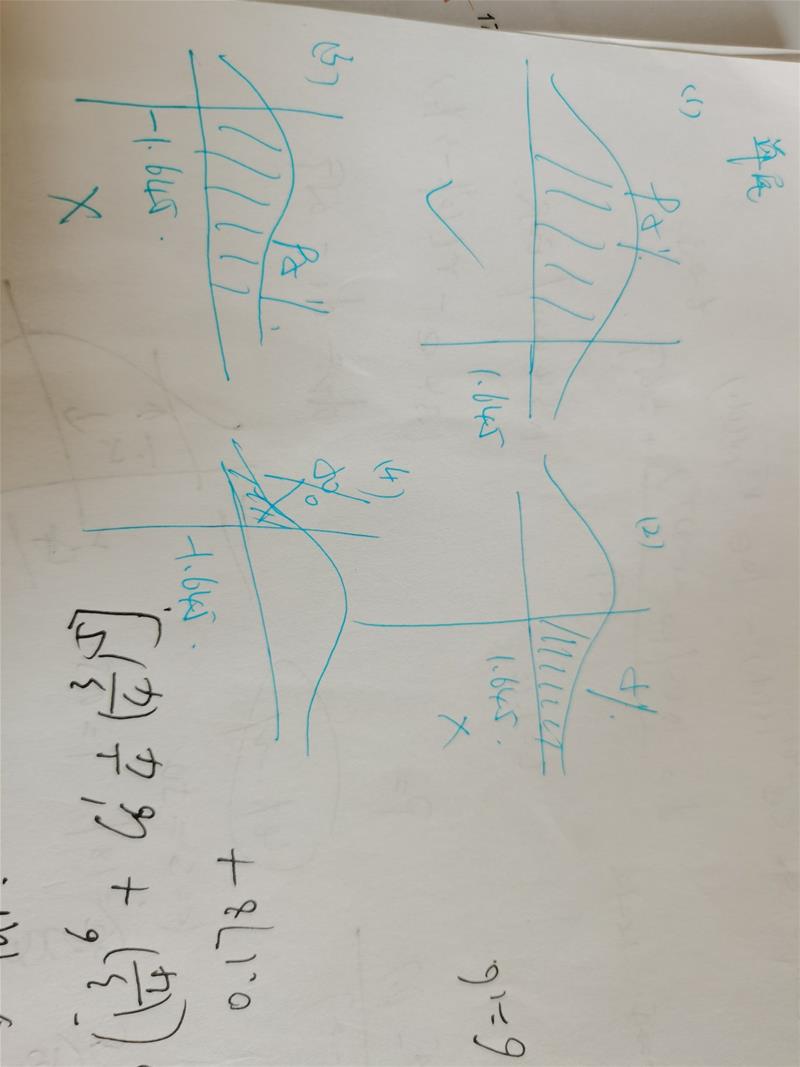 单尾
(1)
95%
1.645
✓
(2)
5%
1.645.
×
(3)
95%
-1.645.
×
(4)
-1.645.
0.178 +
(3/4)⁶ + C₆¹ 1/4 (3/4)⁵]